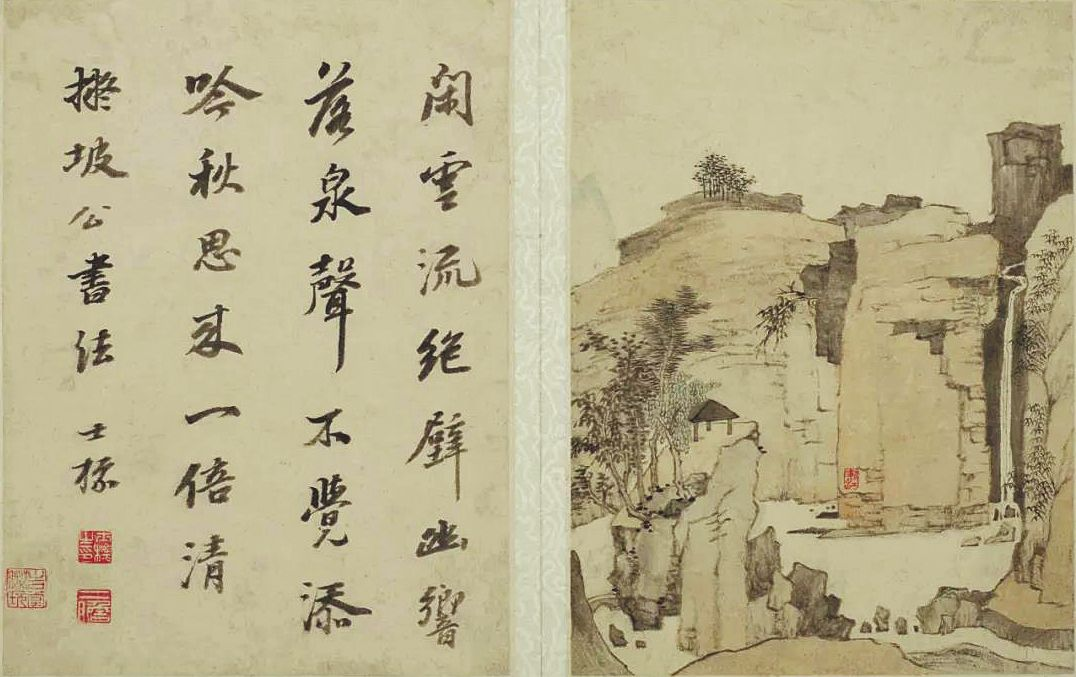 閑雲流絕壁幽響
落泉聲不覺添
吟秋思來一倍清
擬坡公書法 士標